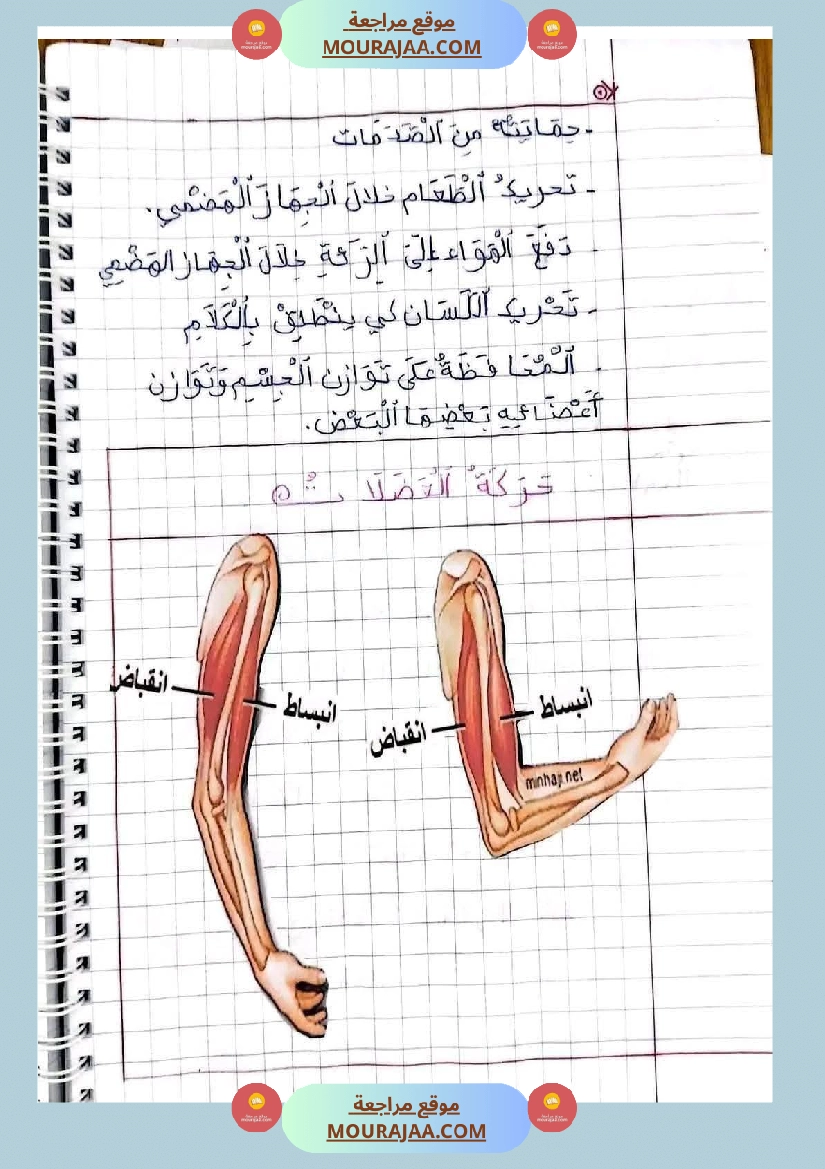 موقع مراجعة
MOURAJAA.COM
- حِمَايَتُهُ مِنَ الْصَّدَمَات
- تَحريكُ الْطَّعَام خلالَ الْجِهَازَ الْهَضْمِي.
- دَفْعَ الْهَوَاء إِلَىَ الِرّئَةِ خِلَالَ الْجِهَاز الهَضْمِي
- تَحْرِيك الْلِّسَان لكي ينْطَلِقْ بِالْكَلَامِ
- الْمُحَافَظَةُ عَلَى تَوَازن الْجِسْمِ وَتَوَازن
أَعْضَائِهِ بَعْضِهَا الْبَعْض.
حَرَكَةُ الْعَضَلَات
انقباض
انبساط
انبساط
انقباض
minhaji.net
موقع مراجعة
MOURAJAA.COM